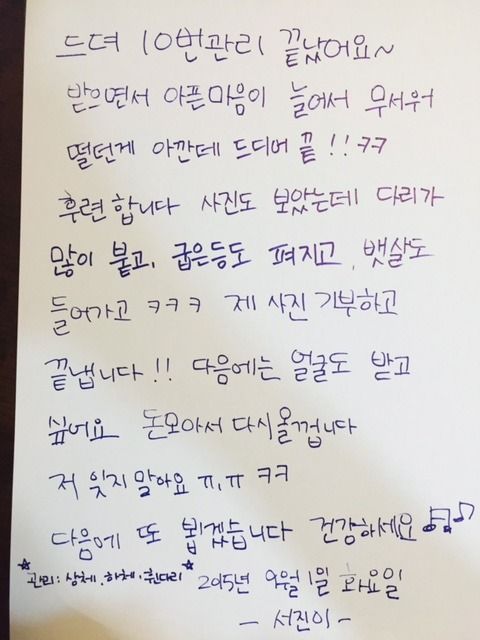 드뎌 10번관리 끝났어요~
받으면서 아픈마음이 늘어서 무서워
떨던게 아깐데 드디어 끝!! ㅋㅋ
후련합니다 사진도 보았는데 다리가
많이 붙고, 굽은등도 펴지고, 뱃살도
들어가고 ㅋㅋㅋ 제 사진 기부하고
끝냅니다!! 다음에는 얼굴도 받고
싶어요 돈모아서 다시올껍니다
저 잊지말아요 ㅠ,ㅠ ㅋㅋ
다음에 또 뵙겠습니다 건강하세요♬♪
*관리: 상체.하체.휜다리* 2015년 9월 1일 화요일
- 서진이 -